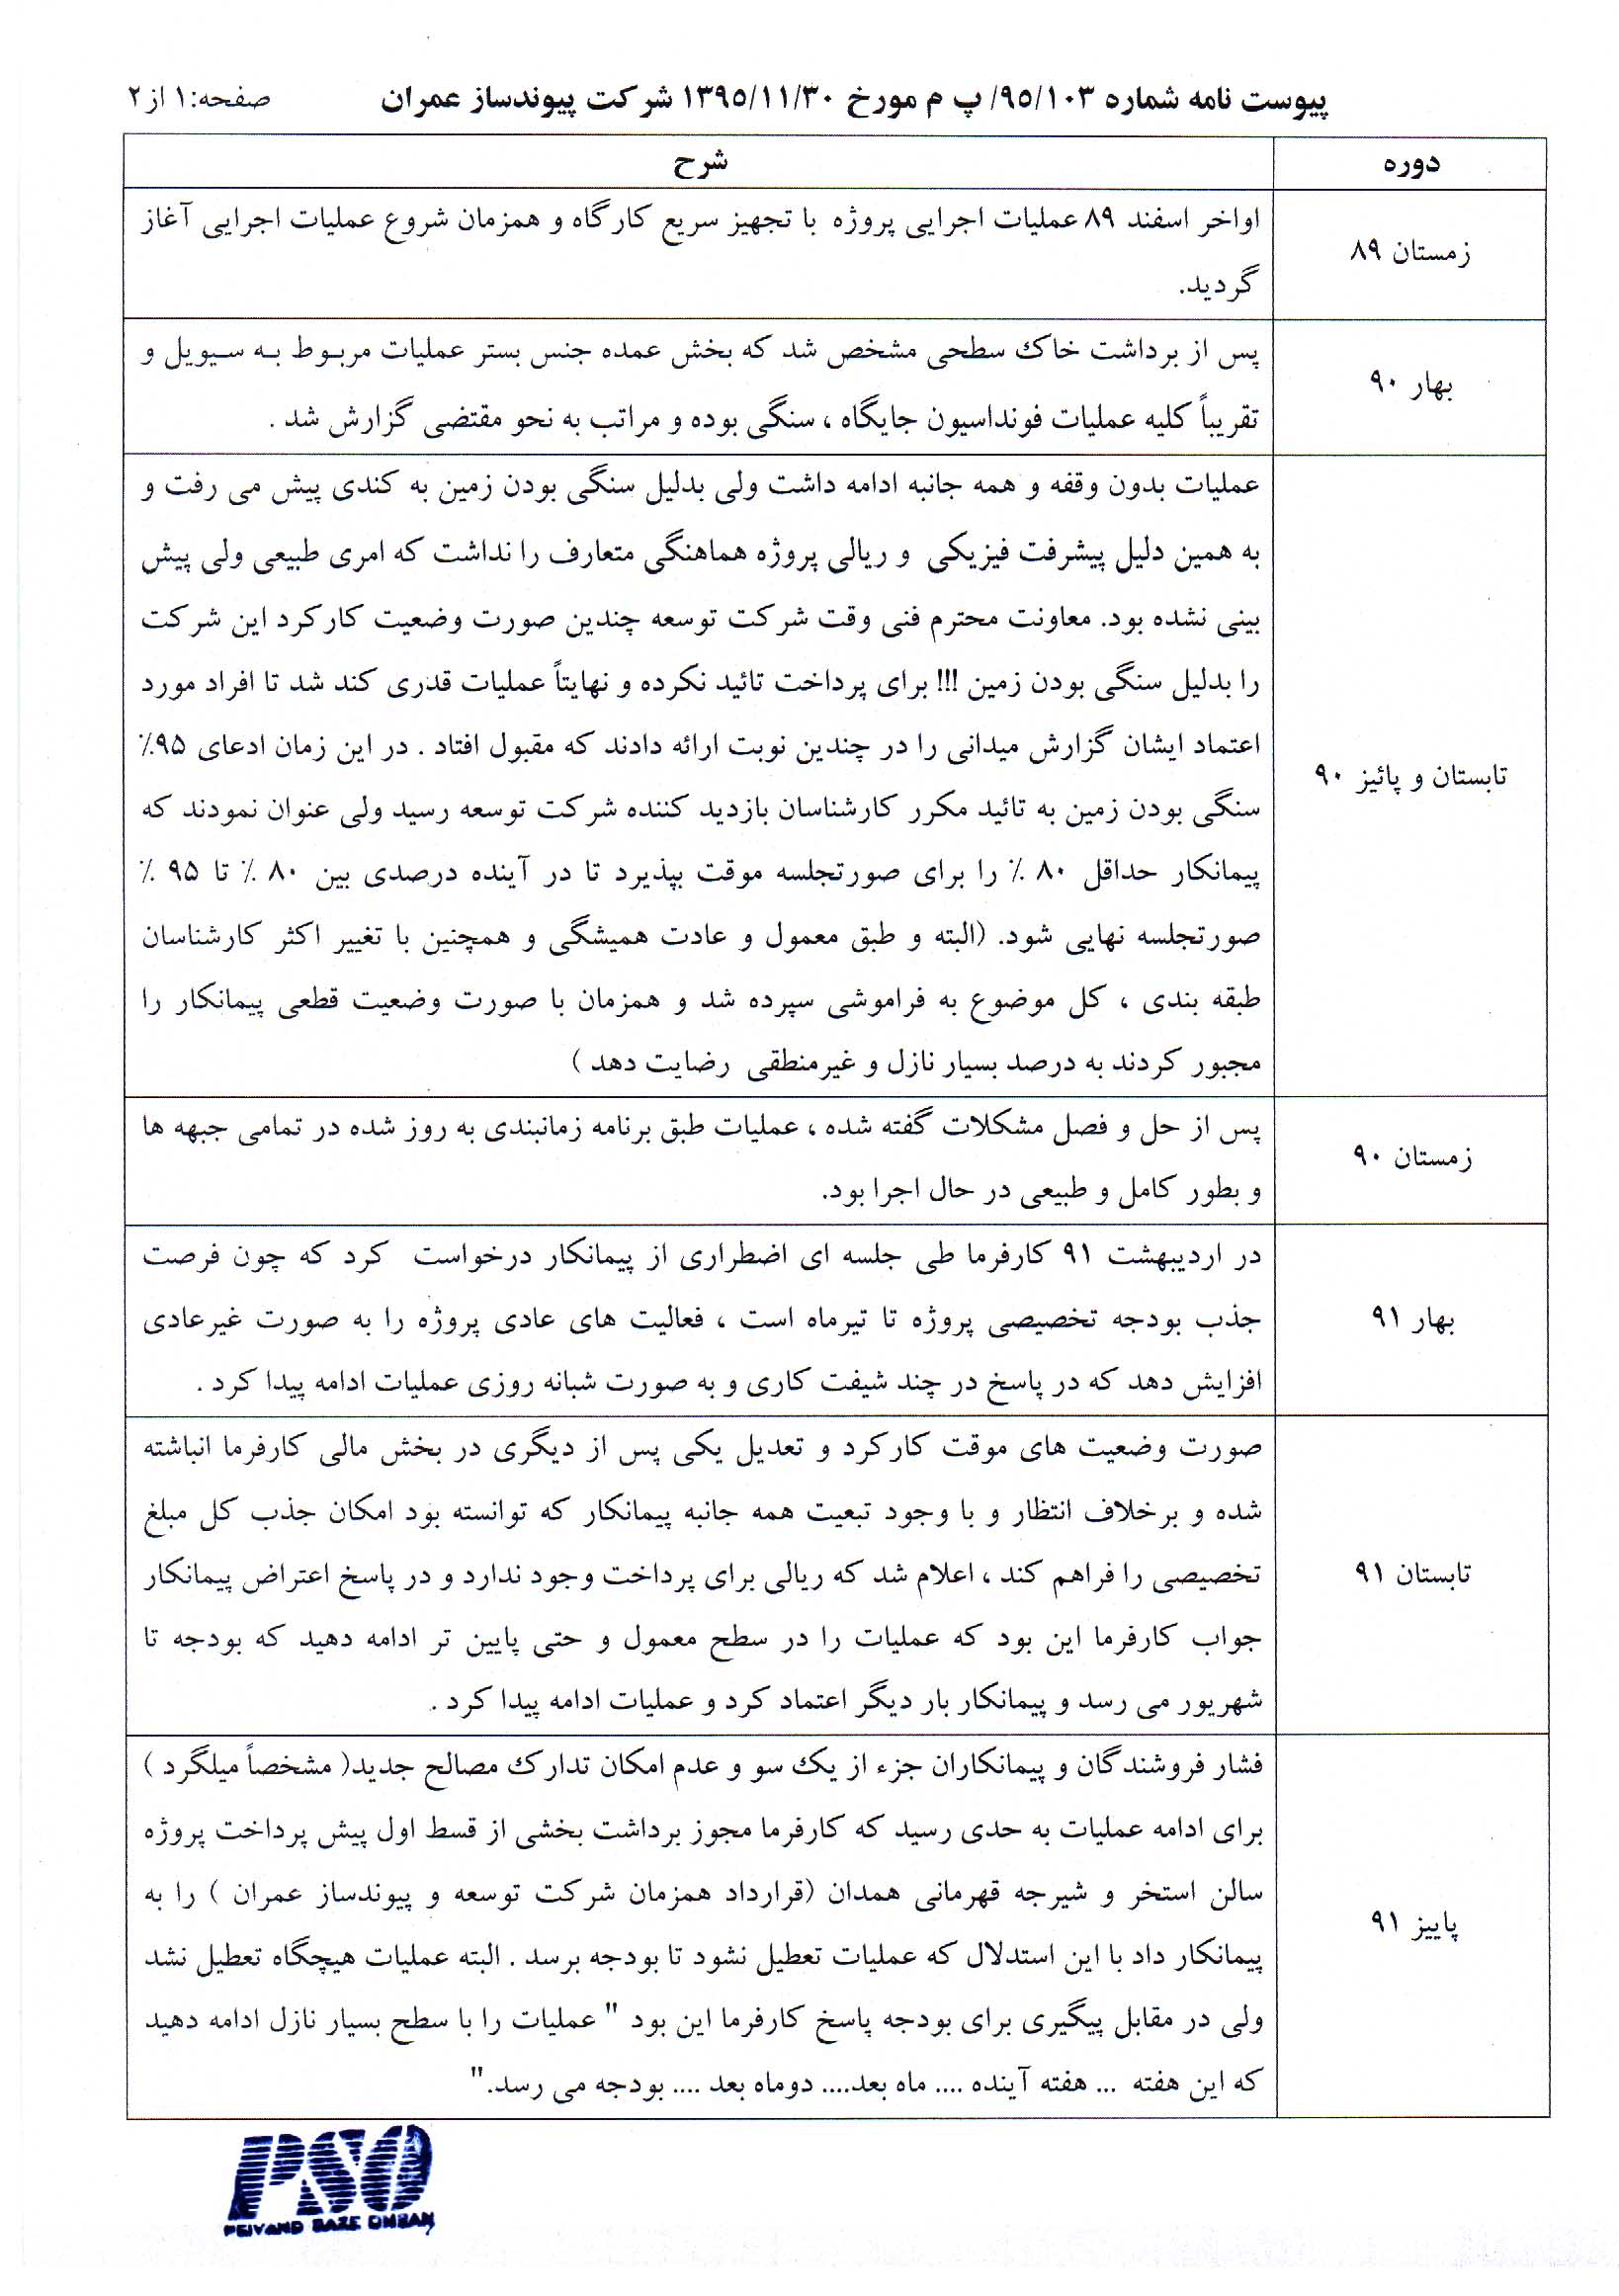 پیوست نامه شماره ۹۵/۱۰۳/ پ م مورخ ۱۳۹۵/۱۱/۳۰ شرکت پیوندساز عمران
صفحه:۱ از ۲
دوره
شرح
زمستان ۸۹
اواخر اسفند ۸۹ عملیات اجرایی پروژه با تجهیز سریع کارگاه و همزمان شروع عملیات اجرایی آغاز
گردید.
بهار ۹۰
پس از برداشت خاک سطحی مشخص شد که بخش عمده جنس بستر عملیات مربوط به سیویل و
تقریباً کلیه عملیات فونداسیون جایگاه ، سنگی بوده و مراتب به نحو مقتضی گزارش شد .
تابستان و پائیز ۹۰
عملیات بدون وقفه و همه جانبه ادامه داشت ولی بدلیل سنگی بودن زمین به کندی پیش می رفت و
به همین دلیل پیشرفت فیزیکی و ریالی پروژه هماهنگی متعارف را نداشت که امری طبیعی ولی پیش
بینی نشده بود. معاونت محترم فنی وقت شرکت توسعه چندین صورت وضعیت کارکرد این شرکت
را بدلیل سنگی بودن زمین !!! برای پرداخت تائید نکرده و نهایتاً عملیات قدری کند شد تا افراد مورد
اعتماد ایشان گزارش میدانی را در چندین نوبت ارائه دادند که مقبول افتاد . در این زمان ادعای ۹۵٪
سنگی بودن زمین به تائید مکرر کارشناسان بازدید کننده شرکت توسعه رسید ولی عنوان نمودند که
پیمانکار حداقل ۸۰ ٪ را برای صورتجلسه موقت بپذیرد تا در آینده درصدی بین ۸۰ ٪ تا ۹۵ ٪
صورتجلسه نهایی شود. (البته و طبق معمول و عادت همیشگی و همچنین با تغییر اکثر کارشناسان
طبقه بندی ، کل موضوع به فراموشی سپرده شد و همزمان با صورت وضعیت قطعی پیمانکار را
مجبور کردند به درصد بسیار نازل و غیرمنطقی رضایت دهد )
زمستان ۹۰
پس از حل و فصل مشکلات گفته شده ، عملیات طبق برنامه زمانبندی به روز شده در تمامی جبهه ها
و بطور کامل و طبیعی در حال اجرا بود.
بهار ۹۱
در اردیبهشت ۹۱ کارفرما طی جلسه ای اضطراری از پیمانکار درخواست کرد که چون فرصت
جذب بودجه تخصیصی پروژه تا تیرماه است ، فعالیت های عادی پروژه را به صورت غیرعادی
افزایش دهد که در پاسخ در چند شیفت کاری و به صورت شبانه روزی عملیات ادامه پیدا کرد .
تابستان ۹۱
صورت وضعیت های موقت کارکرد و تعدیل یکی پس از دیگری در بخش مالی کارفرما انباشته
شده و برخلاف انتظار و با وجود تبعیت همه جانبه پیمانکار که توانسته بود امکان جذب کل مبلغ
تخصیصی را فراهم کند ، اعلام شد که ریالی برای پرداخت وجود ندارد و در پاسخ اعتراض پیمانکار
جواب کارفرما این بود که عملیات را در سطح معمول و حتی پایین تر ادامه دهید که بودجه تا
شهریور می رسد و پیمانکار بار دیگر اعتماد کرد و عملیات ادامه پیدا کرد .
پاییز ۹۱
فشار فروشندگان و پیمانکاران جزء از یک سو و عدم امکان تدارک مصالح جدید( مشخصاً میلگرد )
برای ادامه عملیات به حدی رسید که کارفرما مجوز برداشت بخشی از قسط اول پیش پرداخت پروژه
سالن استخر و شیرجه قهرمانی همدان (قرارداد همزمان شرکت توسعه و پیوندساز عمران ) را به
پیمانکار داد با این استدلال که عملیات تعطیل نشود تا بودجه برسد . البته عملیات هیچگاه تعطیل نشد
ولی در مقابل پیگیری برای بودجه پاسخ کارفرما این بود " عملیات را با سطح بسیار نازل ادامه دهید
که این هفته ... هفته آینده .... ماه بعد.... دوماه بعد .... بودجه می رسد."
PSO
PEIVAND SAZE OMRAN